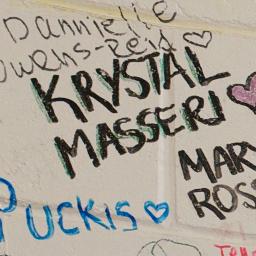 Dannielle
Owens-Reid
KRYSTAL
MASSERI
MARY
ROSS
PUCKIS